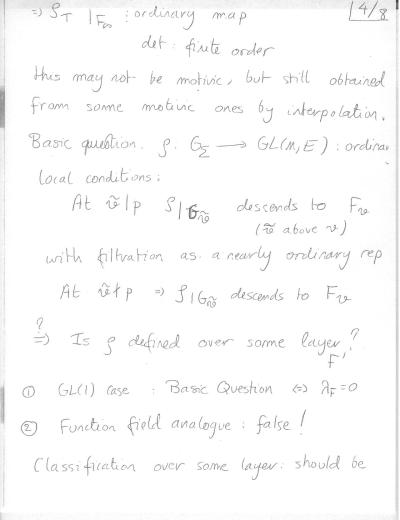 4/8
⇒ ρ_T |F∞ : ordinary map
det : finite order
this may not be motivic, but still obtained
from some motivic ones by interpolation.
Basic question. ρ. G_Σ → GL(n, E) : ordinar
local conditions :
At ṽ|p ρ|G_ṽ descends to F_v
(ṽ above v)
with filtration as a nearly ordinary rep
At ṽ∤p ⇒ ρ|G_ṽ descends to F_v
?
⇒ Is ρ defined over some layer?
F'
① GL(1) case : Basic Question ⇔ λ_F = 0
② Function field analogue : false!
Classification over some layer: should be